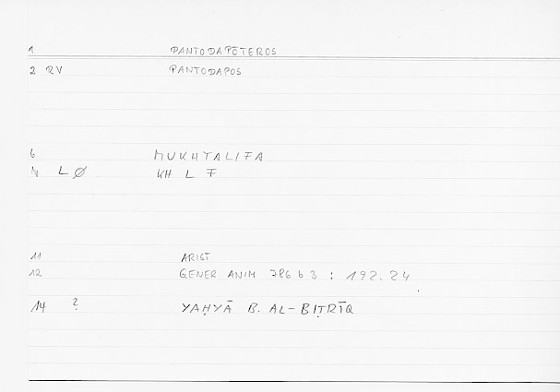 1 PANTODAPŌTEROS
2 RV PANTODAPOS
6 MUKHTALIFA
N LØ KH L F
11 ARIST
12 GENER ANIM 786 b 3 : 192.24
14 ? YAḤYĀ B. AL-BIṬRĪQ